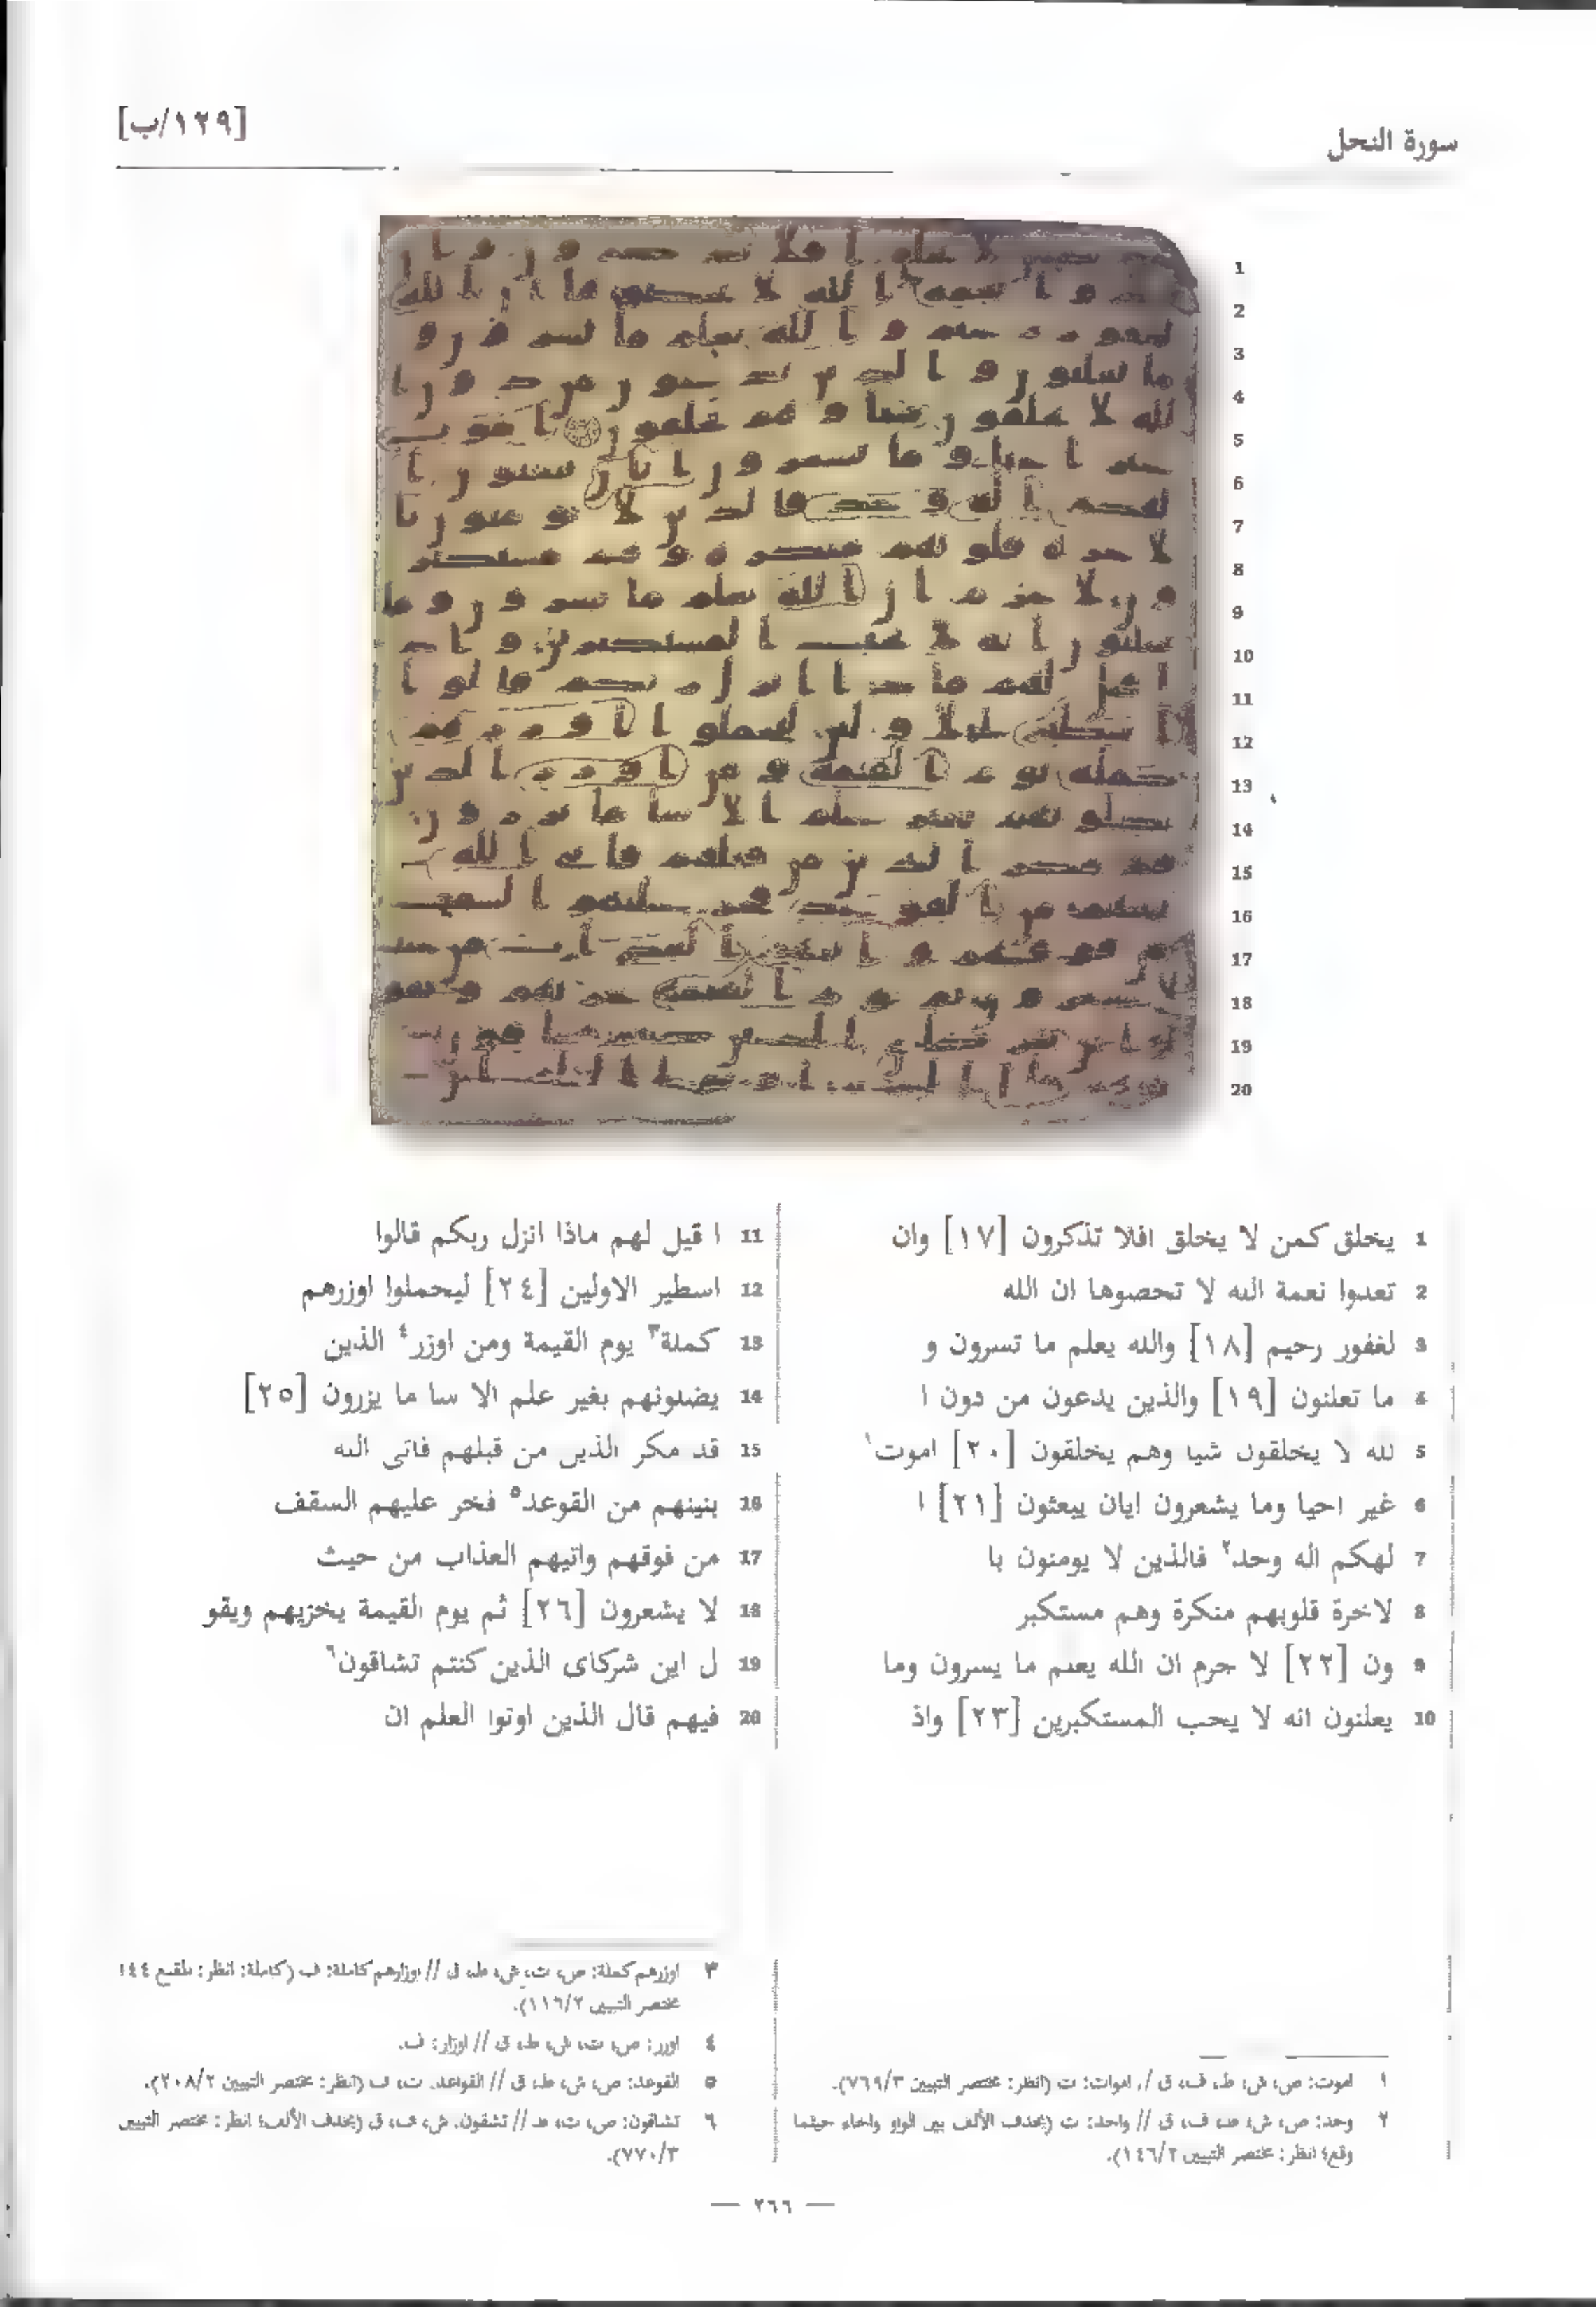 سورة النحل
[١٢٩/ب]
1
2
3
4
5
6
7
8
9
10
11
12
13
14
15
16
17
18
19
20
1 يخلق كمن لا يخلق افلا تذكرون [١٧] وان
2 تعدوا نعمة الله لا تحصوها ان الله
3 لغفور رحيم [١٨] والله يعلم ما تسرون و
4 ما تعلنون [١٩] والذين يدعون من دون ا
5 لله لا يخلقون شيا وهم يخلقون [٢٠] اموت١
6 غير احيا وما يشعرون ايان يبعثون [٢١] ا
7 لهكم اله وحد٢ فالذين لا يومنون با
8 لاخرة قلوبهم منكرة وهم مستكبر
9 ون [٢٢] لا جرم ان الله يعلم ما يسرون وما
10 يعلنون انه لا يحب المستكبرين [٢٣] واذ
11 ا قيل لهم ماذا انزل ربكم قالوا
12 اسطير الاولين [٢٤] ليحملوا اوزرهم
13 كملة٣ يوم القيمة ومن اوزر٤ الذين
14 يضلونهم بغير علم الا سا ما يزرون [٢٥]
15 قد مكر الذين من قبلهم فاتى الله
16 بنينهم من القوعد٥ فخر عليهم السقف
17 من فوقهم واتيهم العذاب من حيث
18 لا يشعرون [٢٦] ثم يوم القيمة يخزيهم ويقو
19 ل اين شركاى الذين كنتم تشاقون٦
20 فيهم قال الذين اوتوا العلم ان
١ اموت: ص، ش، ط، ف، ق // اموات: ت (انظر: مختصر التبيين ٧٦٩/٣).
٢ وحد: ص، ش، ط، ف، ق // واحد: ت (بحذف الألف بين الواو والحاء حيثما
وقع؛ انظر: مختصر التبيين ١٤٦/٢).
٣ اوزرهم كملة: ص، ت، ش، ط، ق // اوزارهم كاملة: ف (كاملة: انظر: المقنع ١٤٤
مختصر التبيين ١١٦/٢).
٤ اوزر: ص، ت، ش، ط، ق // اوزار: ف.
٥ القوعد: ص، ش، ط، ق // القواعد: ت، ف (انظر: مختصر التبيين ٢٠٨/٢).
٦ تشاقون: ص، ت، ط // تشقون: ش، ف، ق (بحذف الألف؛ انظر: مختصر التبيين
٧٧٠/٣).
— ٢٦٦ —